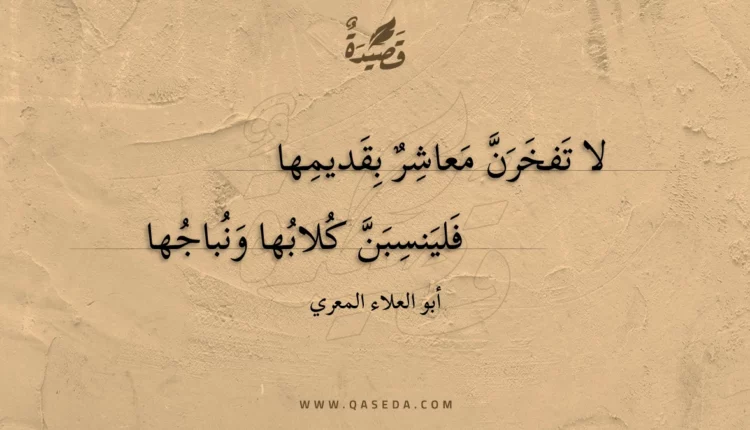 قَصِيدَةٌ
لا تَفخَرَنَّ مَعاشِرٌ بِقَديمِها
فَليَنسِبَنَّ كُلابُها وَنُباجُها
أبو العلاء المعري
WWW.QASEDA.COM